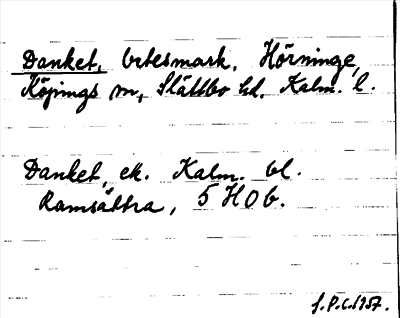 Danket, betesmark, Hörninge,
Köpings sn, Slättbo hd. Kalm. l.
Danket, ek. Kalm. bl.
Ramsättra, 5 H O b.
f. P.C. 1957.